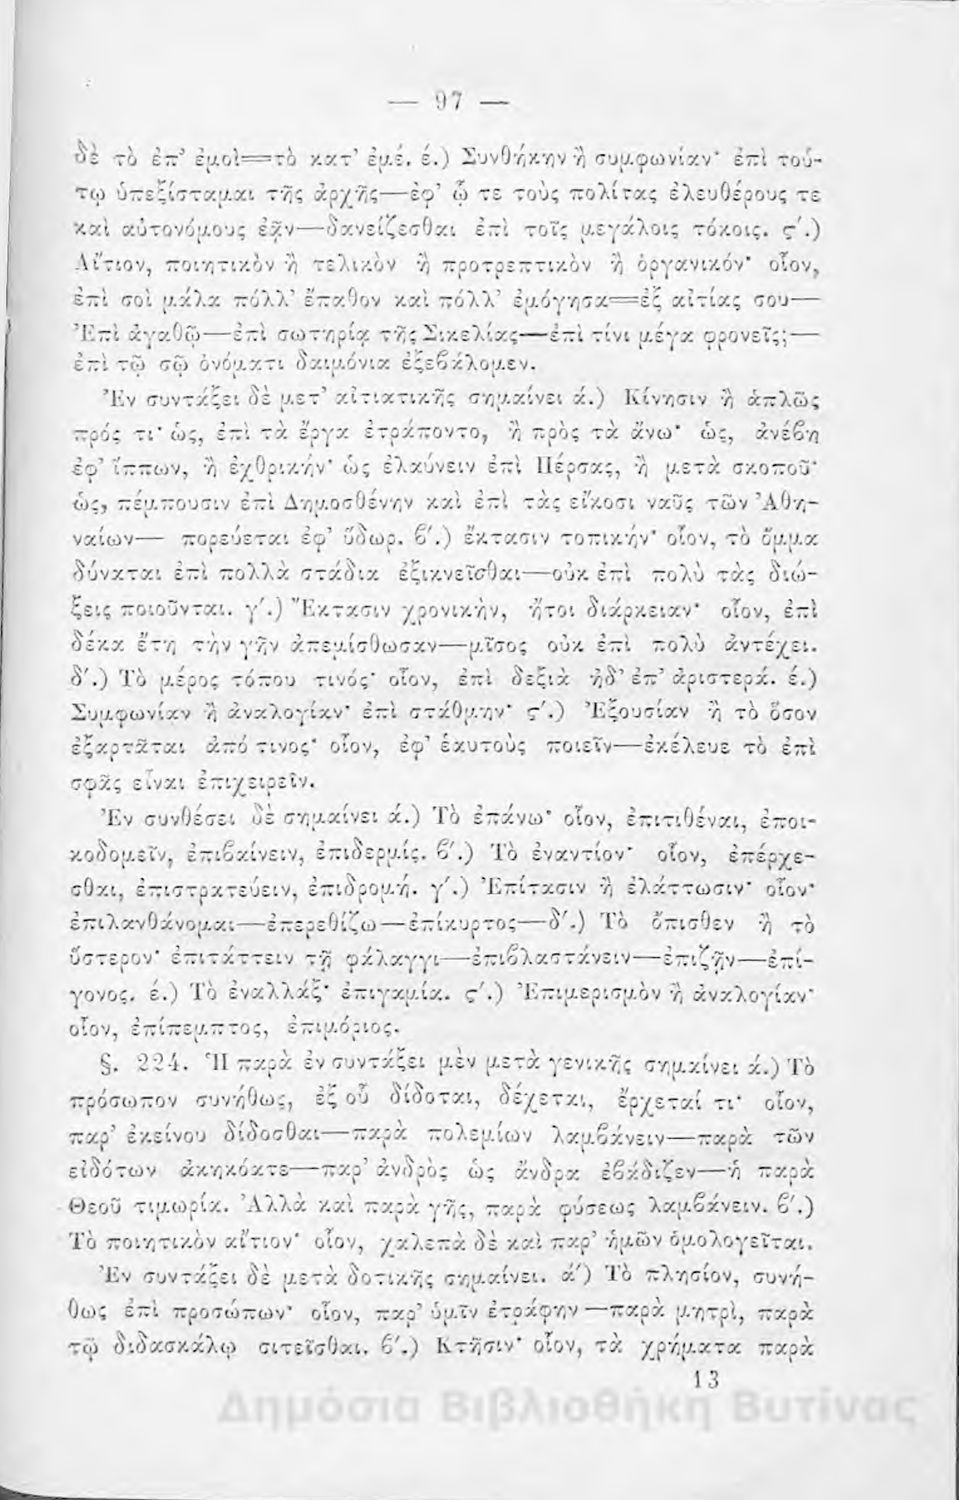 — 97 —
δὲ τὸ ἐπ’ ἐμοὶ=τὸ κατ’ ἐμέ. έ.) Συνθήκην ἢ συμφωνίαν· ἐπὶ τού-
τῳ ὑπεξίσταμαι τῆς ἀρχῆς—ἐφ’ ᾧ τε τοὺς πολίτας ἐλευθέρους τε
καὶ αὐτονόμους ἐᾷν—δανείζεσθαι ἐπὶ τοῖς μεγάλοις τόκοις. ς΄.)
Αἴτιον, ποιητικὸν ἢ τελικὸν ἢ προτρεπτικὸν ἢ ὀργανικόν· οἷον,
ἐπὶ σοὶ μάλα πόλλ’ ἔπαθον καὶ πόλλ’ ἐμόγησα=ἐξ αἰτίας σου—
Ἐπὶ ἀγαθῷ—ἐπὶ σωτηρίᾳ τῆς Σικελίας—ἐπὶ τίνι μέγα φρονεῖς;—
ἐπὶ τῷ σῷ ὀνόματι δαιμόνια ἐξεβάλομεν.
Ἐν συντάξει δὲ μετ’ αἰτιατικῆς σημαίνει ά.) Κίνησιν ἢ ἁπλῶς
πρός τι· ὡς, ἐπὶ τὰ ἔργα ἐτράποντο, ἢ πρὸς τὰ ἄνω· ὡς, ἀνέβη
ἐφ’ ἵππων, ἢ ἐχθρικήν· ὡς ἐλαύνειν ἐπὶ Πέρσας, ἢ μετὰ σκοποῦ·
ὡς, πέμπουσιν ἐπὶ Δημοσθένην καὶ ἐπὶ τὰς εἴκοσι ναῦς τῶν Ἀθη-
ναίων— πορεύεται ἐφ’ ὕδωρ. β΄.) ἔκτασιν τοπικήν· οἷον, τὸ ὄμμα
δύναται ἐπὶ πολλὰ στάδια ἐξικνεῖσθαι—οὐκ ἐπὶ πολὺ τὰς διώ-
ξεις ποιοῦνται. γ΄.) Ἔκτασιν χρονικὴν, ἤτοι διάρκειαν· οἷον, ἐπὶ
δέκα ἔτη τὴν γῆν ἀπεμίσθωσαν—μῖσος οὐκ ἐπὶ πολὺ ἀντέχει.
δ΄.) Τὸ μέρος τόπου τινός· οἷον, ἐπὶ δεξιὰ ἠδ’ ἐπ’ ἀριστερά. έ.)
Συμφωνίαν ἢ ἀναλογίαν· ἐπὶ στάθμην· ς΄.) Ἐξουσίαν ἢ τὸ ὅσον
ἐξαρτᾶται ἀπό τινος· οἷον, ἐφ’ ἑαυτοὺς ποιεῖν—ἐκέλευε τὸ ἐπὶ
σφᾶς εἶναι ἐπιχειρεῖν.
Ἐν συνθέσει δὲ σημαίνει ά.) Τὸ ἐπάνω· οἷον, ἐπιτιθέναι, ἐποι-
κοδομεῖν, ἐπιβαίνειν, ἐπιδερμίς. β΄.) Τὸ ἐναντίον· οἷον, ἐπέρχε-
σθαι, ἐπιστρατεύειν, ἐπιδρομή. γ΄.) Ἐπίτασιν ἢ ἐλάττωσιν· οἷον·
ἐπιλανθάνομαι—ἐπερεθίζω—ἐπίκυρτος—δ΄.) Τὸ ὄπισθεν ἢ τὸ
ὕστερον· ἐπιτάττειν τῇ φάλαγγι—ἐπιβλαστάνειν—ἐπιζῇν—ἐπί-
γονος. έ.) Τὸ ἐναλλάξ· ἐπιγαμία. ς΄.) Ἐπιμερισμὸν ἢ ἀναλογίαν·
οἷον, ἐπίπεμπτος, ἐπιμόριος.
§. 224. Ἡ παρὰ ἐν συντάξει μὲν μετὰ γενικῆς σημαίνει ά.) Τὸ
πρόσωπον συνήθως, ἐξ οὗ δίδοται, δέχεται, ἔρχεταί τι· οἷον,
παρ’ ἐκείνου δίδοσθαι—παρὰ πολεμίων λαμβάνειν—παρὰ τῶν
εἰδότων ἀκηκόατε—παρ’ ἀνδρὸς ὡς ἄνδρα ἐβάδιζεν—ἡ παρὰ
Θεοῦ τιμωρία. Ἀλλὰ καὶ παρὰ γῆς, παρὰ φύσεως λαμβάνειν. β΄.)
Τὸ ποιητικὸν αἴτιον· οἷον, χαλεπὰ δὲ καὶ παρ’ ἡμῶν ὁμολογεῖται.
Ἐν συντάξει δὲ μετὰ δοτικῆς σημαίνει. ά) Τὸ πλησίον, συνή-
θως ἐπὶ προσώπων· οἷον, παρ’ ὑμῖν ἐτράφην—παρὰ μητρὶ, παρὰ
τῷ διδασκάλῳ σιτεῖσθαι. β΄.) Κτῆσιν· οἷον, τὰ χρήματα παρὰ
13
Δημόσια Βιβλιοθήκη Βυτίνας